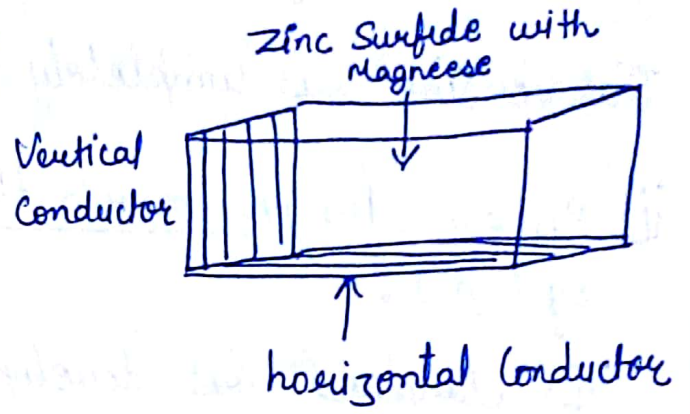 Zinc Surfide with
Magneese
Vertical
Conductor
horizontal Conductor